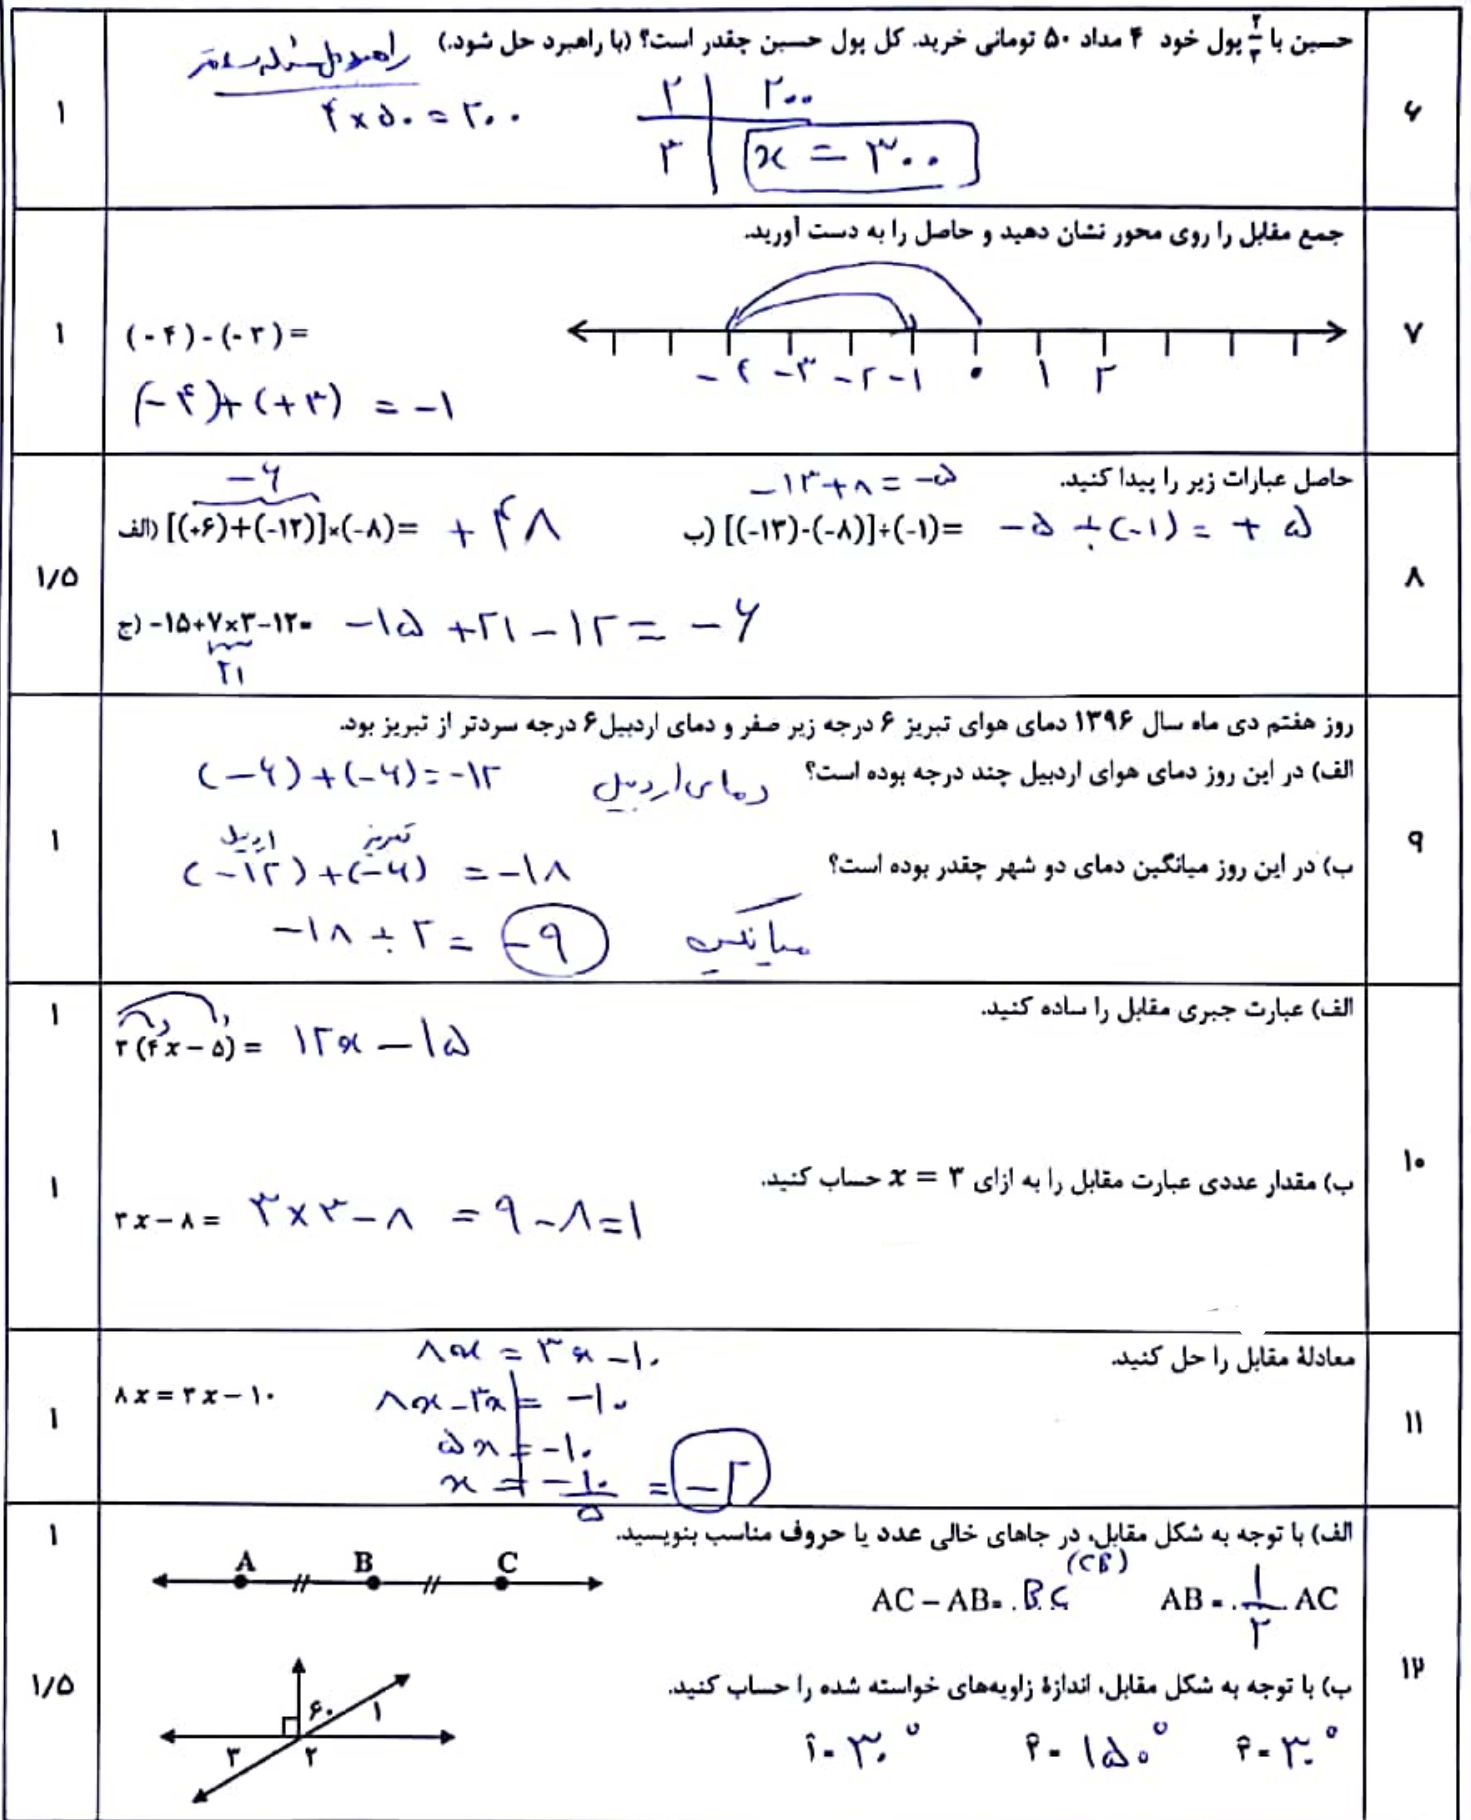 ۶
حسین با ۲/۳ پول خود ۴ مداد ۵۰ تومانی خرید. کل پول حسین چقدر است؟ (با راهبرد حل شود.)
۴ × ۵۰ = ۲۰۰
۲ | ۲۰۰
۳ | x = ۳۰۰
۱
۷
جمع مقابل را روی محور نشان دهید و حاصل را به دست آورید.
(-۴)-(-۳)=
-۴ -۳ -۲ -۱ ۰ ۱ ۲
(-۴)+(+۳) = -۱
۱
۸
حاصل عبارات زیر را پیدا کنید.
-۶
الف) [(+۶)+(-۱۲)]×(-۸)= +۴۸
-۱۳+۸=-۵
ب) [(-۱۳)-(-۸)]÷(-۱)= -۵ ÷(-۱) = +۵
ج) -۱۵+۷×۳-۱۲= -۱۵+۲۱-۱۲= -۶
۲۱
۱/۵
۹
روز هفتم دی ماه سال ۱۳۹۶ دمای هوای تبریز ۶ درجه زیر صفر و دمای اردبیل ۶ درجه سردتر از تبریز بود.
الف) در این روز دمای هوای اردبیل چند درجه بوده است؟ دمای اردبیل (-۶)+(-۶)=-۱۲
ب) در این روز میانگین دمای دو شهر چقدر بوده است؟
اردبیل تبریز
(-۱۲)+(-۶) =-۱۸
میانگین -۱۸ ÷ ۲ = -۹
۱
۱۰
الف) عبارت جبری مقابل را ساده کنید.
۳(۴x-۵)= ۱۲x-۱۵
۱
ب) مقدار عددی عبارت مقابل را به ازای x = ۳ حساب کنید.
۳x-۸= ۳×۳-۸ =۹-۸=۱
۱
۱۱
معادلهٔ مقابل را حل کنید.
۸x=۳x-۱۰
۸x = ۳x-۱۰
۸x-۳x = -۱۰
۵x = -۱۰
x = -۱۰/۵ = -۲
۱
۱۲
الف) با توجه به شکل مقابل، در جاهای خالی عدد یا حروف مناسب بنویسید.
A B C
(CB)
AC-AB=.BC AB=.۱/۲.AC
۱
ب) با توجه به شکل مقابل، اندازهٔ زاویه‌های خواسته شده را حساب کنید.
۶۰ ۱
۳ ۲
۱̂=۳۰° ۲̂=۱۵۰° ۳̂=۳۰°
۱/۵